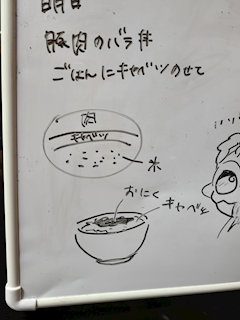 明日
豚肉のバラ丼
ごはんにキャベツのせて
肉
キャベツ
米
おにく
キャベツ